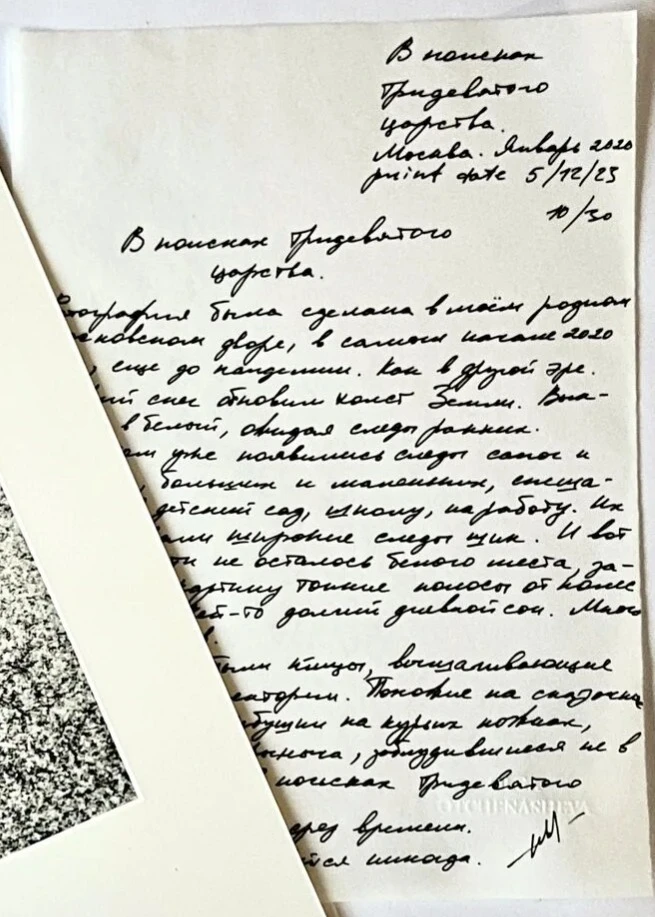 В поисках
Тридевятого
царства.
Москва. Январь 2020
print date 5/12/23
10/30
В поисках Тридевятого
царства.
тография была сделана в моём родном
сковском дворе, в самом начале 2020
, еще до пандемии. Как в другой эре.
ий снег обновил холст Земли.
в белый, ожидая следы ранних.
ом уже появились следы сапог и
, больших и маленьких, спеша-
детский сад, школу, на работу. Их
али широкие следы шин. И вот
ти не осталось белого места, за-
артину тонкие полосы от колес
ей-то долгий дневной сон. Много
в.
были птицы, выщаливающие
ектории. Похожие на сказочны
збушки на курьих ножках,
рыныча, заблудившиеся не в
поисках Тридевятого
еред времени.
тся никогда.
TCHENASHEVA